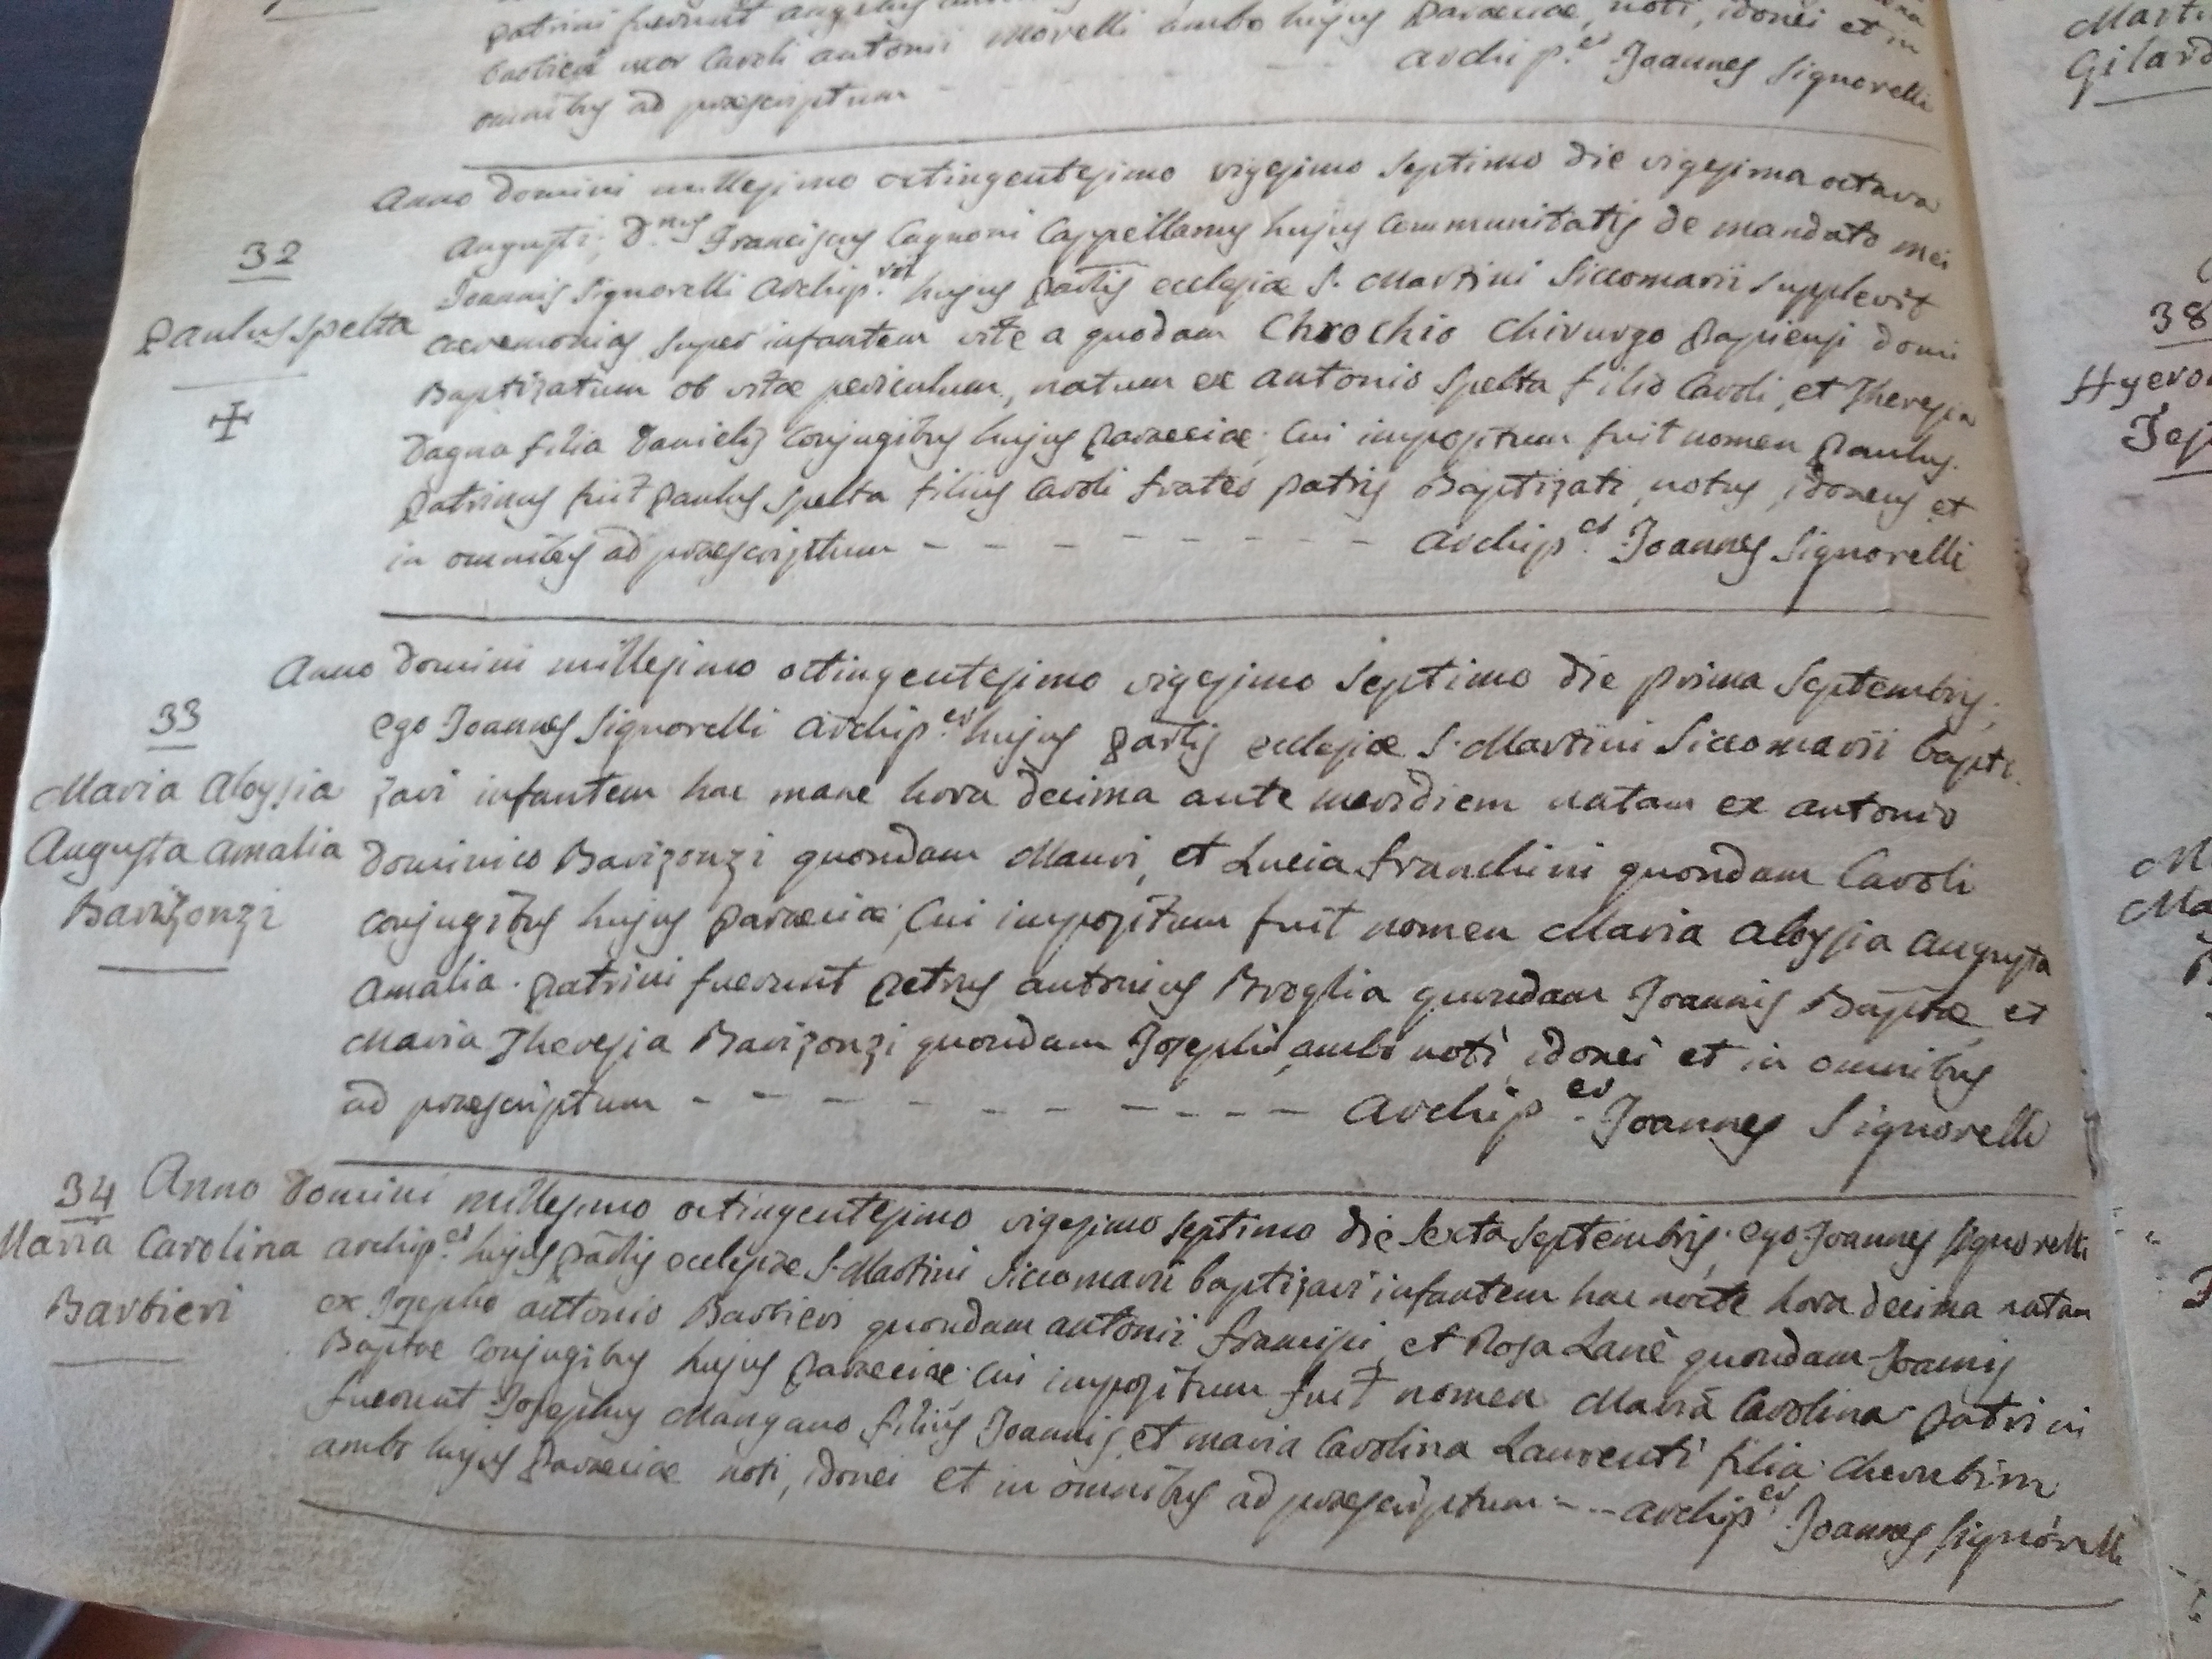 patrini fuerunt
uxor Caroli Antonii Morelli ambo hujus Paraeciae, noti, idonei et in
omnibus ad praescriptum - - - Archip.er Joannes Signorelli
32
Paulus Spelta
Anno Domini millesimo octingentesimo vigesimo septimo die vigesima octava
Augusti; D.nus Franciscus Cagnoni Cappellanus hujus Communitatis de mandato mei
Joannis Signorelli Archip.ri hujus Parlis ecclesiae S. Martini Siccomarii supplevit
caeremonias super infantem rite a quodam Chrochio Chirurgo Papiensi domi
Baptizatum ob vitae periculum, natum ex Antonio Spelta filio Caroli, et Theresia
Dagna filia Danielis Conjugibus hujus Paraeciae; Cui impositum fuit nomen Paulus.
Patrinus fuit Paulus Spelta filius Caroli frater patris Baptizati, notus, idoneus et
in omnibus ad praescriptum - - - - - - - - - Archip.er Joannes Signorelli
33
Maria Aloysia
Augusta Amalia
Barizonzi
Anno Domini millesimo octingentesimo vigesimo septimo die prima Septembris;
ego Joannes Signorelli Archip.er hujus Parlis ecclesiae S. Martini Siccomarii bapti
zavi infantem hac mane hora decima ante meridiem natam ex Antonio
Dominico Barizonzi quondam Mauri, et Lucia Franchini quondam Caroli
conjugibus hujus Paraeciae; Cui impositum fuit nomen Maria Aloysia Augusta
Amalia. Patrini fuerunt Petrus Antonius Broglia quondam Joannis Baptae, et
Maria Theresia Barizonzi quondam Josephi, ambo noti, idonei et in omnibus
ad praescriptum - - - - - - - - - - - Archip.er Joannes Signorelli
34
Maria Carolina
Barbieri
Anno Domini millesimo octingentesimo vigesimo septimo die sexta Septembris; ego Joannes Signorelli
Archip.er hujus Parlis ecclesiae S. Martini Siccomarii baptizavi infantem hac nocte hora decima natam
ex Josepho Antonio Barbieri quondam Antonii Francisci, et Rosa Lanè quondam Joannis
Baptae Conjugibus hujus Paraeciae; Cui impositum fuit nomen Maria Carolina. Patrini
fuerunt Josephus Mangano filius Joannis, et Maria Carolina Laurenti filia Cherubini
ambo hujus Paraeciae noti, idonei et in omnibus ad praescriptum - - - Archip.er Joannes Signorelli
38